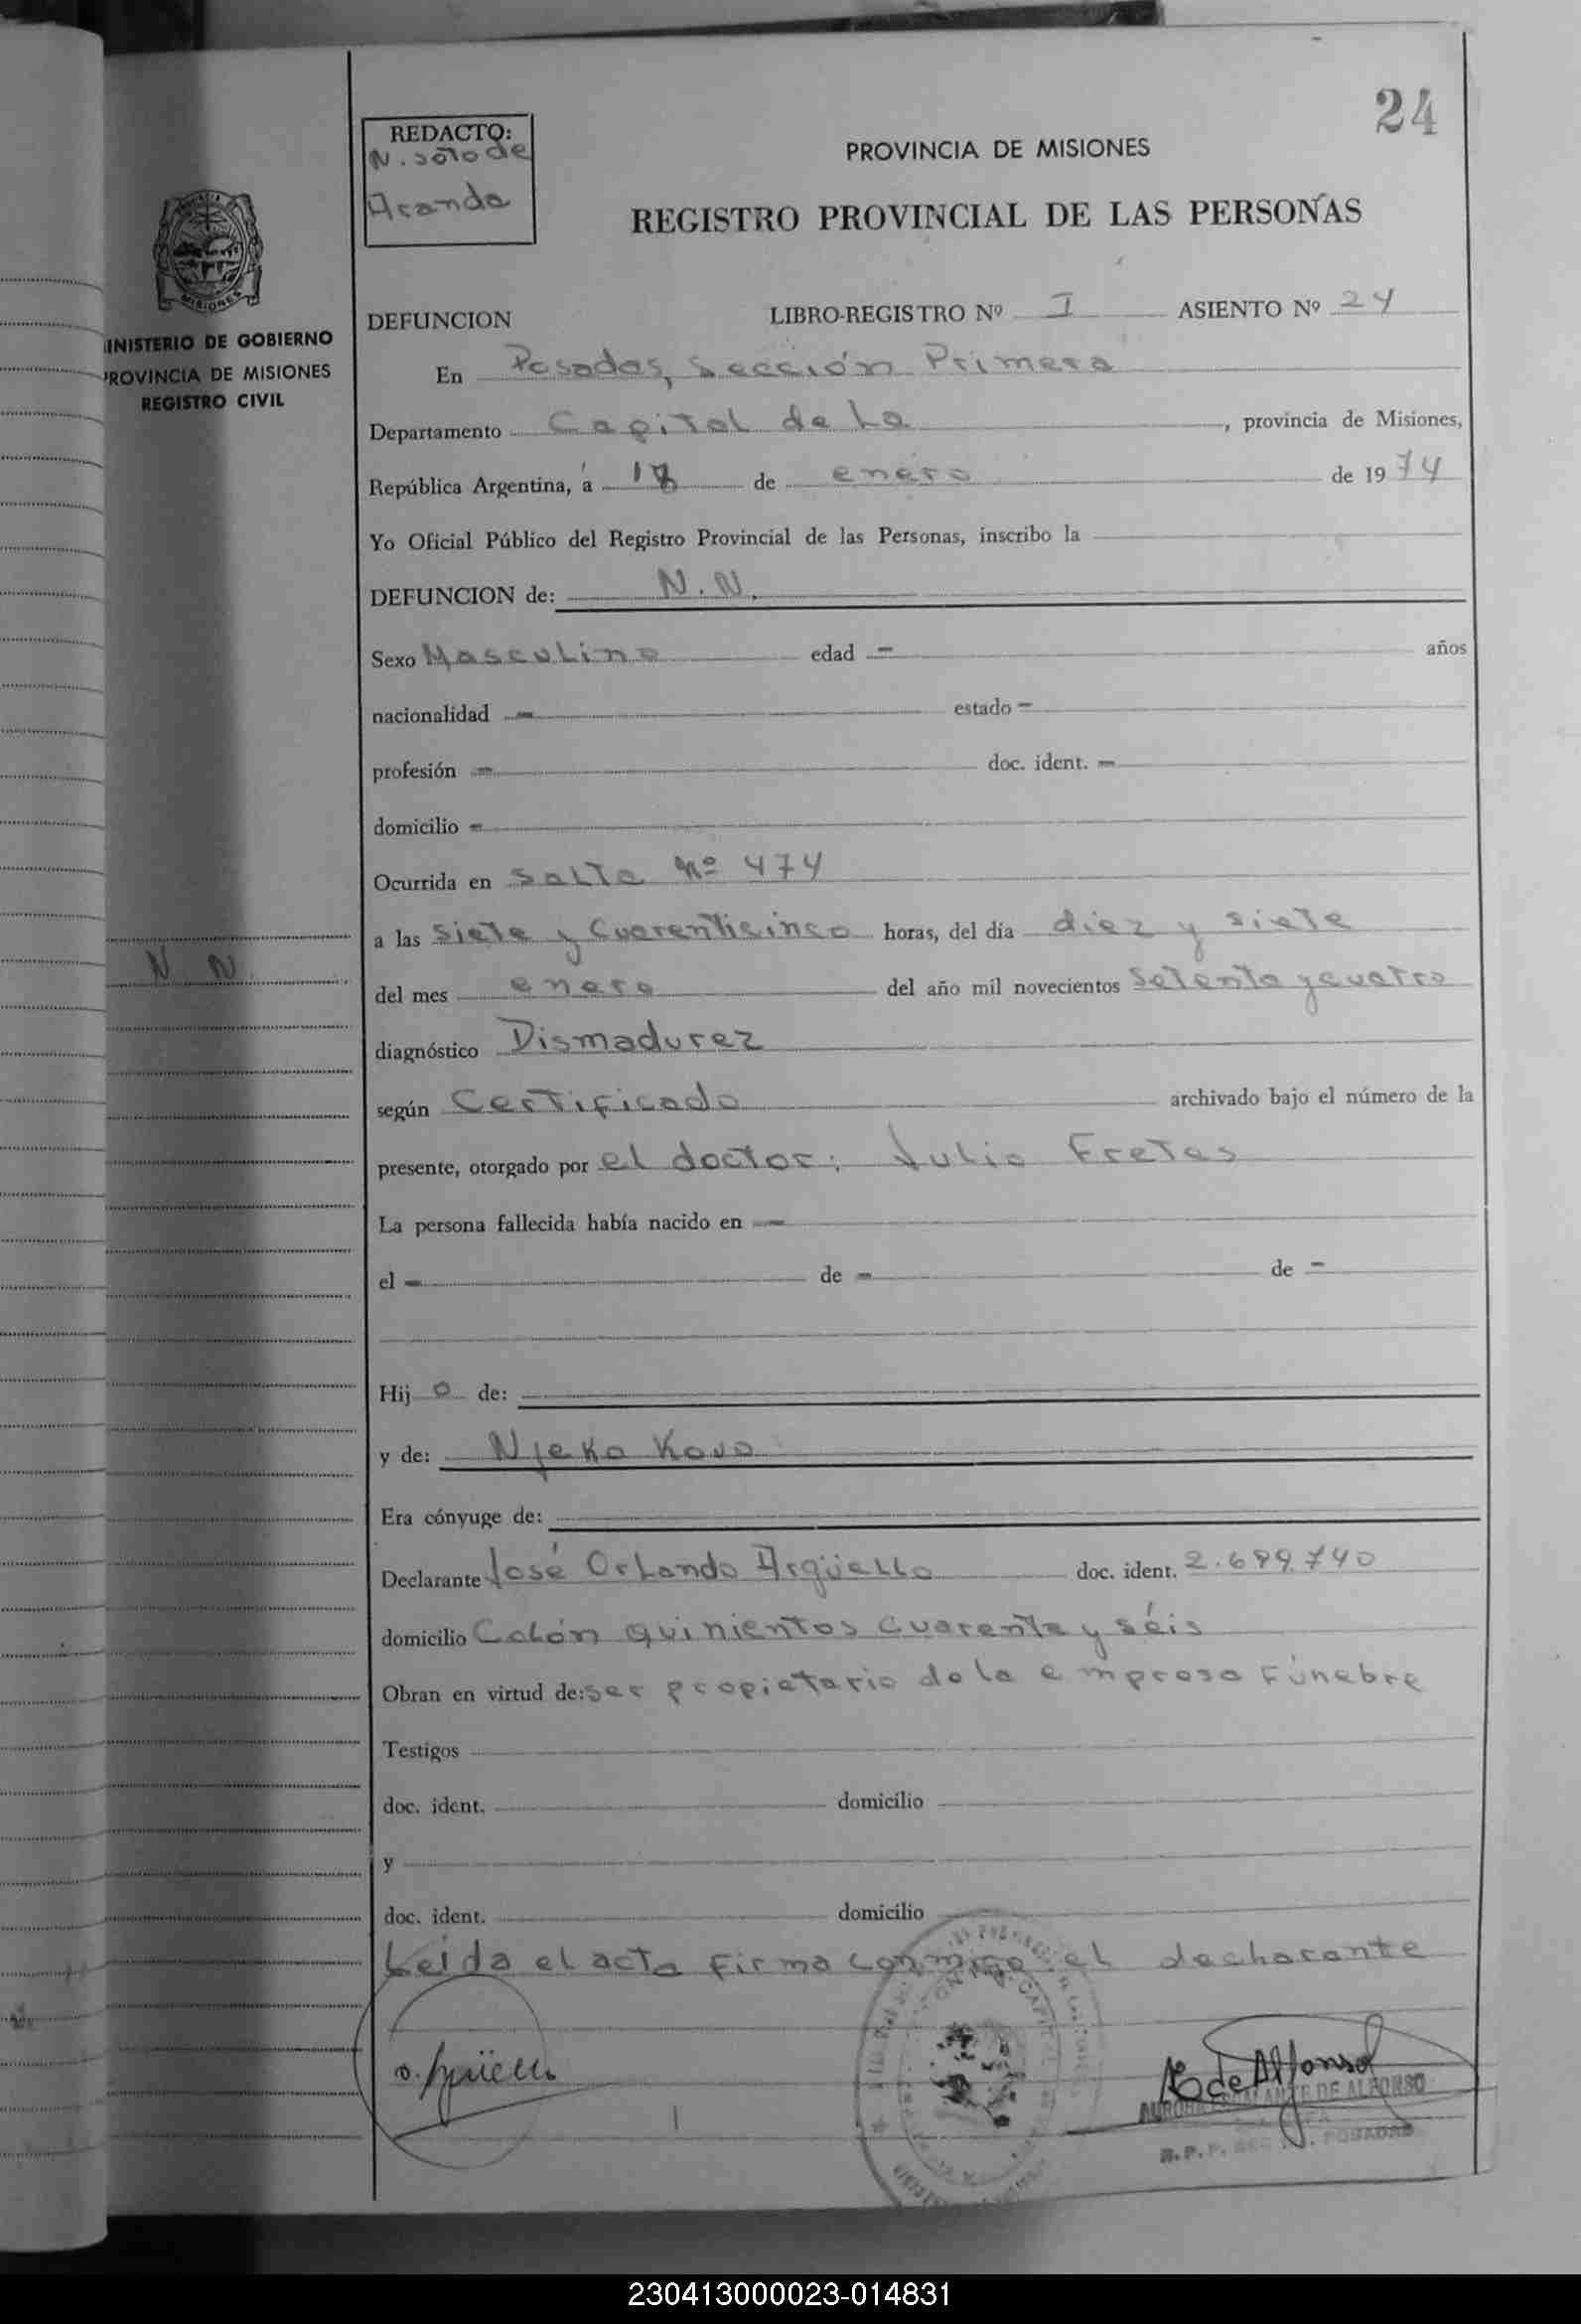 24
REDACTO:
N. soto de
Aranda
PROVINCIA DE MISIONES
REGISTRO PROVINCIAL DE LAS PERSONAS
MISIONES
INISTERIO DE GOBIERNO
PROVINCIA DE MISIONES
REGISTRO CIVIL
DEFUNCION LIBRO-REGISTRO Nº I ASIENTO Nº 24
En Posadas, Sección Primera
Departamento Capital de La , provincia de Misiones,
República Argentina, a 18 de enero de 1974
Yo Oficial Público del Registro Provincial de las Personas, inscribo la
DEFUNCION de: N.N.
Sexo Masculino edad - años
nacionalidad - estado -
profesión - doc. ident. -
domicilio -
Ocurrida en Salta Nº 474
a las siete y Cuarenticinco horas, del día diez y siete
N N.
del mes enero del año mil novecientos Setenta y cuatro
diagnóstico Dismadurez
según Certificado archivado bajo el número de la
presente, otorgado por el doctor: Julio Fretes
La persona fallecida había nacido en -
el - de - de -
Hij o de:
y de: Njeka Kovo
Era cónyuge de:
Declarante José Orlando Argüello doc. ident. 2.699.740
domicilio Colón quinientos cuarenta y séis
Obran en virtud de: ser propietario de la empresa Fúnebre
Testigos
doc. ident. domicilio
y
doc. ident. domicilio
Leida el acta firma conmigo el decharante
O. Argüello
E de Alfonso
AURORA ESCALANTE DE ALFONSO
R.P.P. SEC POSADAS
230413000023-014831